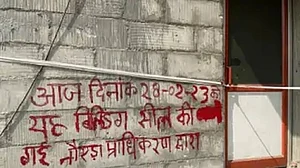 आज दिनांक 28-02-23 को
यह बिल्डिंग सील की
गई नौएडा प्राधिकरण द्वारा